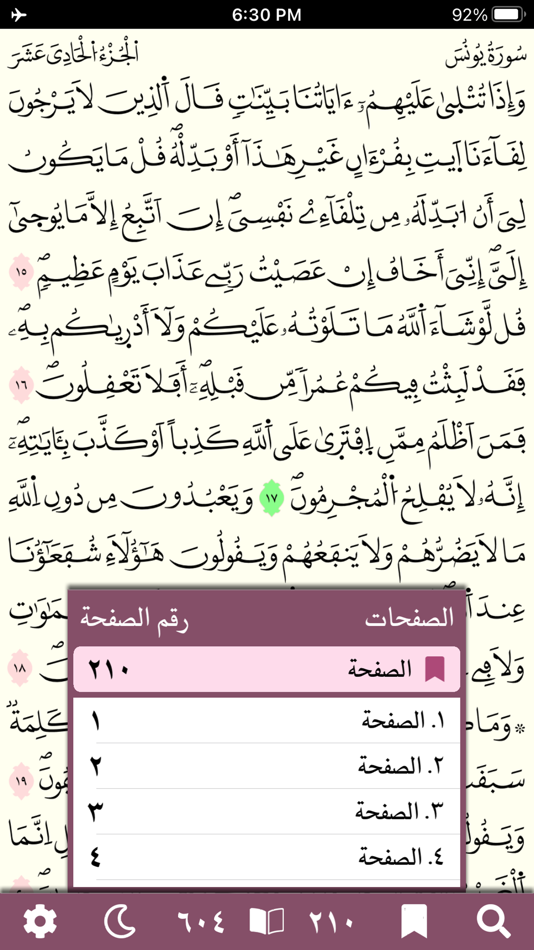 6:30 PM
92%
سُورَةُ يُونُسَ
اَلْجُزْءُ اُلْحَادِي عَشَرَ
وَإِذَا تُتْل۪يٰ عَلَيْهِمُۥٓ ءَايَاتُنَا بَيِّنَٰتٖ قَالَ اَ۬لذِينَ لَا يَرْجُونَ
لِقَآءَنَا اَ۪يتِ بِقُرْءَانٍ غَيْرِ هَٰذَآ أَوْ بَدِّلْهُۖ قُلْ مَا يَكُونُ
لِيَ أَنُ ا۟بَدِّلَهُۥ مِن تِلْقَآءِےْ نَفْسِيَۖ إِنَ اَتَّبِعُ إِلَّا مَا يُوح۪يٰٓ
إِلَيَّۖ إِنِّيَ أَخَافُ إِنْ عَصَيْتُ رَبِّے عَذَابَ يَوْمٍ عَظِيمٖۖ ١٥
قُل لَّوْ شَآءَ اَ۬للَّهُ مَا تَلَوْتُهُۥ عَلَيْكُمْ وَلَآ أَدْر۪يٰكُم بِهِۦۖ
فَقَدْ لَبِثْتُ فِيكُمْ عُمُراٗ مِّن قَبْلِهِۦٓۖ أَفَلَا تَعْقِلُونَۖ ١٦
فَمَنَ اَظْلَمُ مِمَّنِ اِ۪فْتَر۪يٰ عَلَي اَ۬للَّهِ كَذِباً اَوْ كَذَّبَ بِـَٔايَٰتِهِۦٓۖ
إِنَّهُۥ لَا يُفْلِحُ اُ۬لْمُجْرِمُونَۖ ١٧ وَيَعْبُدُونَ مِن دُونِ اِ۬للَّهِ
مَا لَا يَضُرُّهُمْ وَلَا يَنفَعُهُمْ وَيَقُولُونَ هَٰٓؤُلَآءِ شُفَعَٰٓؤُنَا
عِندَ
وَلَا فِے ١٨
۞ وَمَا كَلِمَةٞ
سَبَقَتْ ١٩
وَيَقُولُ إِنَّمَا
الصفحات
رقم الصفحة
الصفحة ٢١٠
١. الصفحة ١
٢. الصفحة ٢
٣. الصفحة ٣
٤. الصفحة ٤
٢١٠
٦٠٤